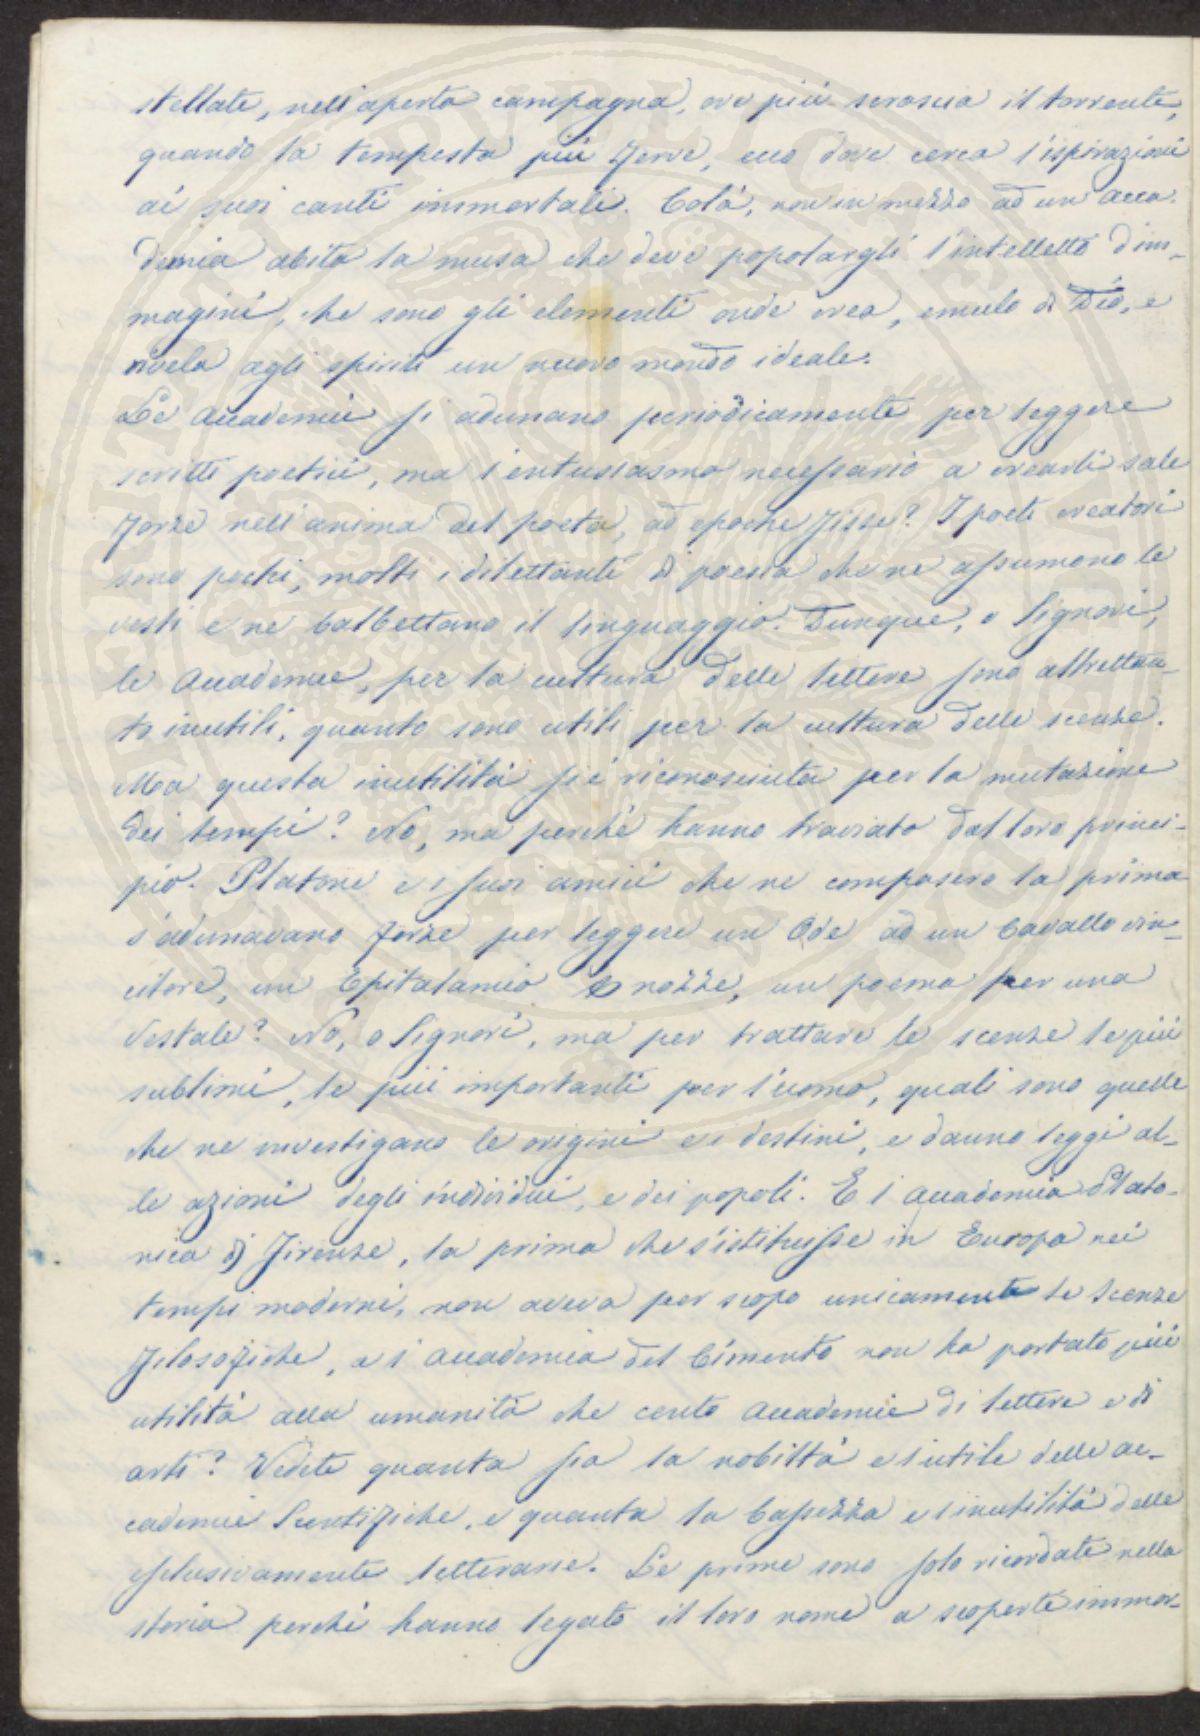 stellate, nell'aperta campagna, ove più scroscia il torrente,
quando la tempesta più ferve, ecco dove cerca l'ispirazioni
ai suoi canti immortali. Colà, non in mezzo ad un Acca-
demia abita la musa che deve popolargli l'intelletto d'im-
magini, che sono gli elementi onde crea, emulo di Dio, e
rivela agli spiriti un nuovo mondo ideale.
Le Accademie si adunano periodicamente per leggere
scritti poetici, ma l'entusiasmo necessario a crearli sale
forse nell'anima del poeta, ad epoche fisse? I poeti creatori
sono pochi, molti i dilettanti di poesia che ne assumono le
vesti e ne balbettano il linguaggio. Dunque, o Signori,
le Accademie, per la cultura delle lettere sono altrettan-
to inutili, quanto sono utili per la cultura delle scenze.
Ma questa inutilità si è riconosciuta per la mutazione
dei tempi? No, ma perchè hanno traviato dal loro princi-
pio. Platone e i suoi amici che ne composero la prima
s'adunavano forse per leggere un Ode ad un Cavallo vin-
citore, un Epitalamio a nozze, un poema per una
Vestale? No, o Signori, ma per trattare le scenze le più
sublimi, le più importanti per l'uomo, quali sono quelle
che ne investigano le origini e i destini, e danno leggi al-
le azioni degli individui, e dei popoli. E l'accademia Plato-
nica di Firenze, la prima che s'istituisse in Europa nei
tempi moderni, non aveva per scopo unicamente le Scenze
filosofiche, e l'accademia del Cimento non ha portato più
utilità alla umanità che cento Accademie di lettere e di
arti? Vedete quanta sia la nobiltà e l'utile delle ac-
cademie Scentifiche, e quanta la bassezza e l'inutilità delle
esclusivamente letterarie. Le prime sono solo ricordate nella
storia perchè hanno legato il loro nome a scoperte immor-